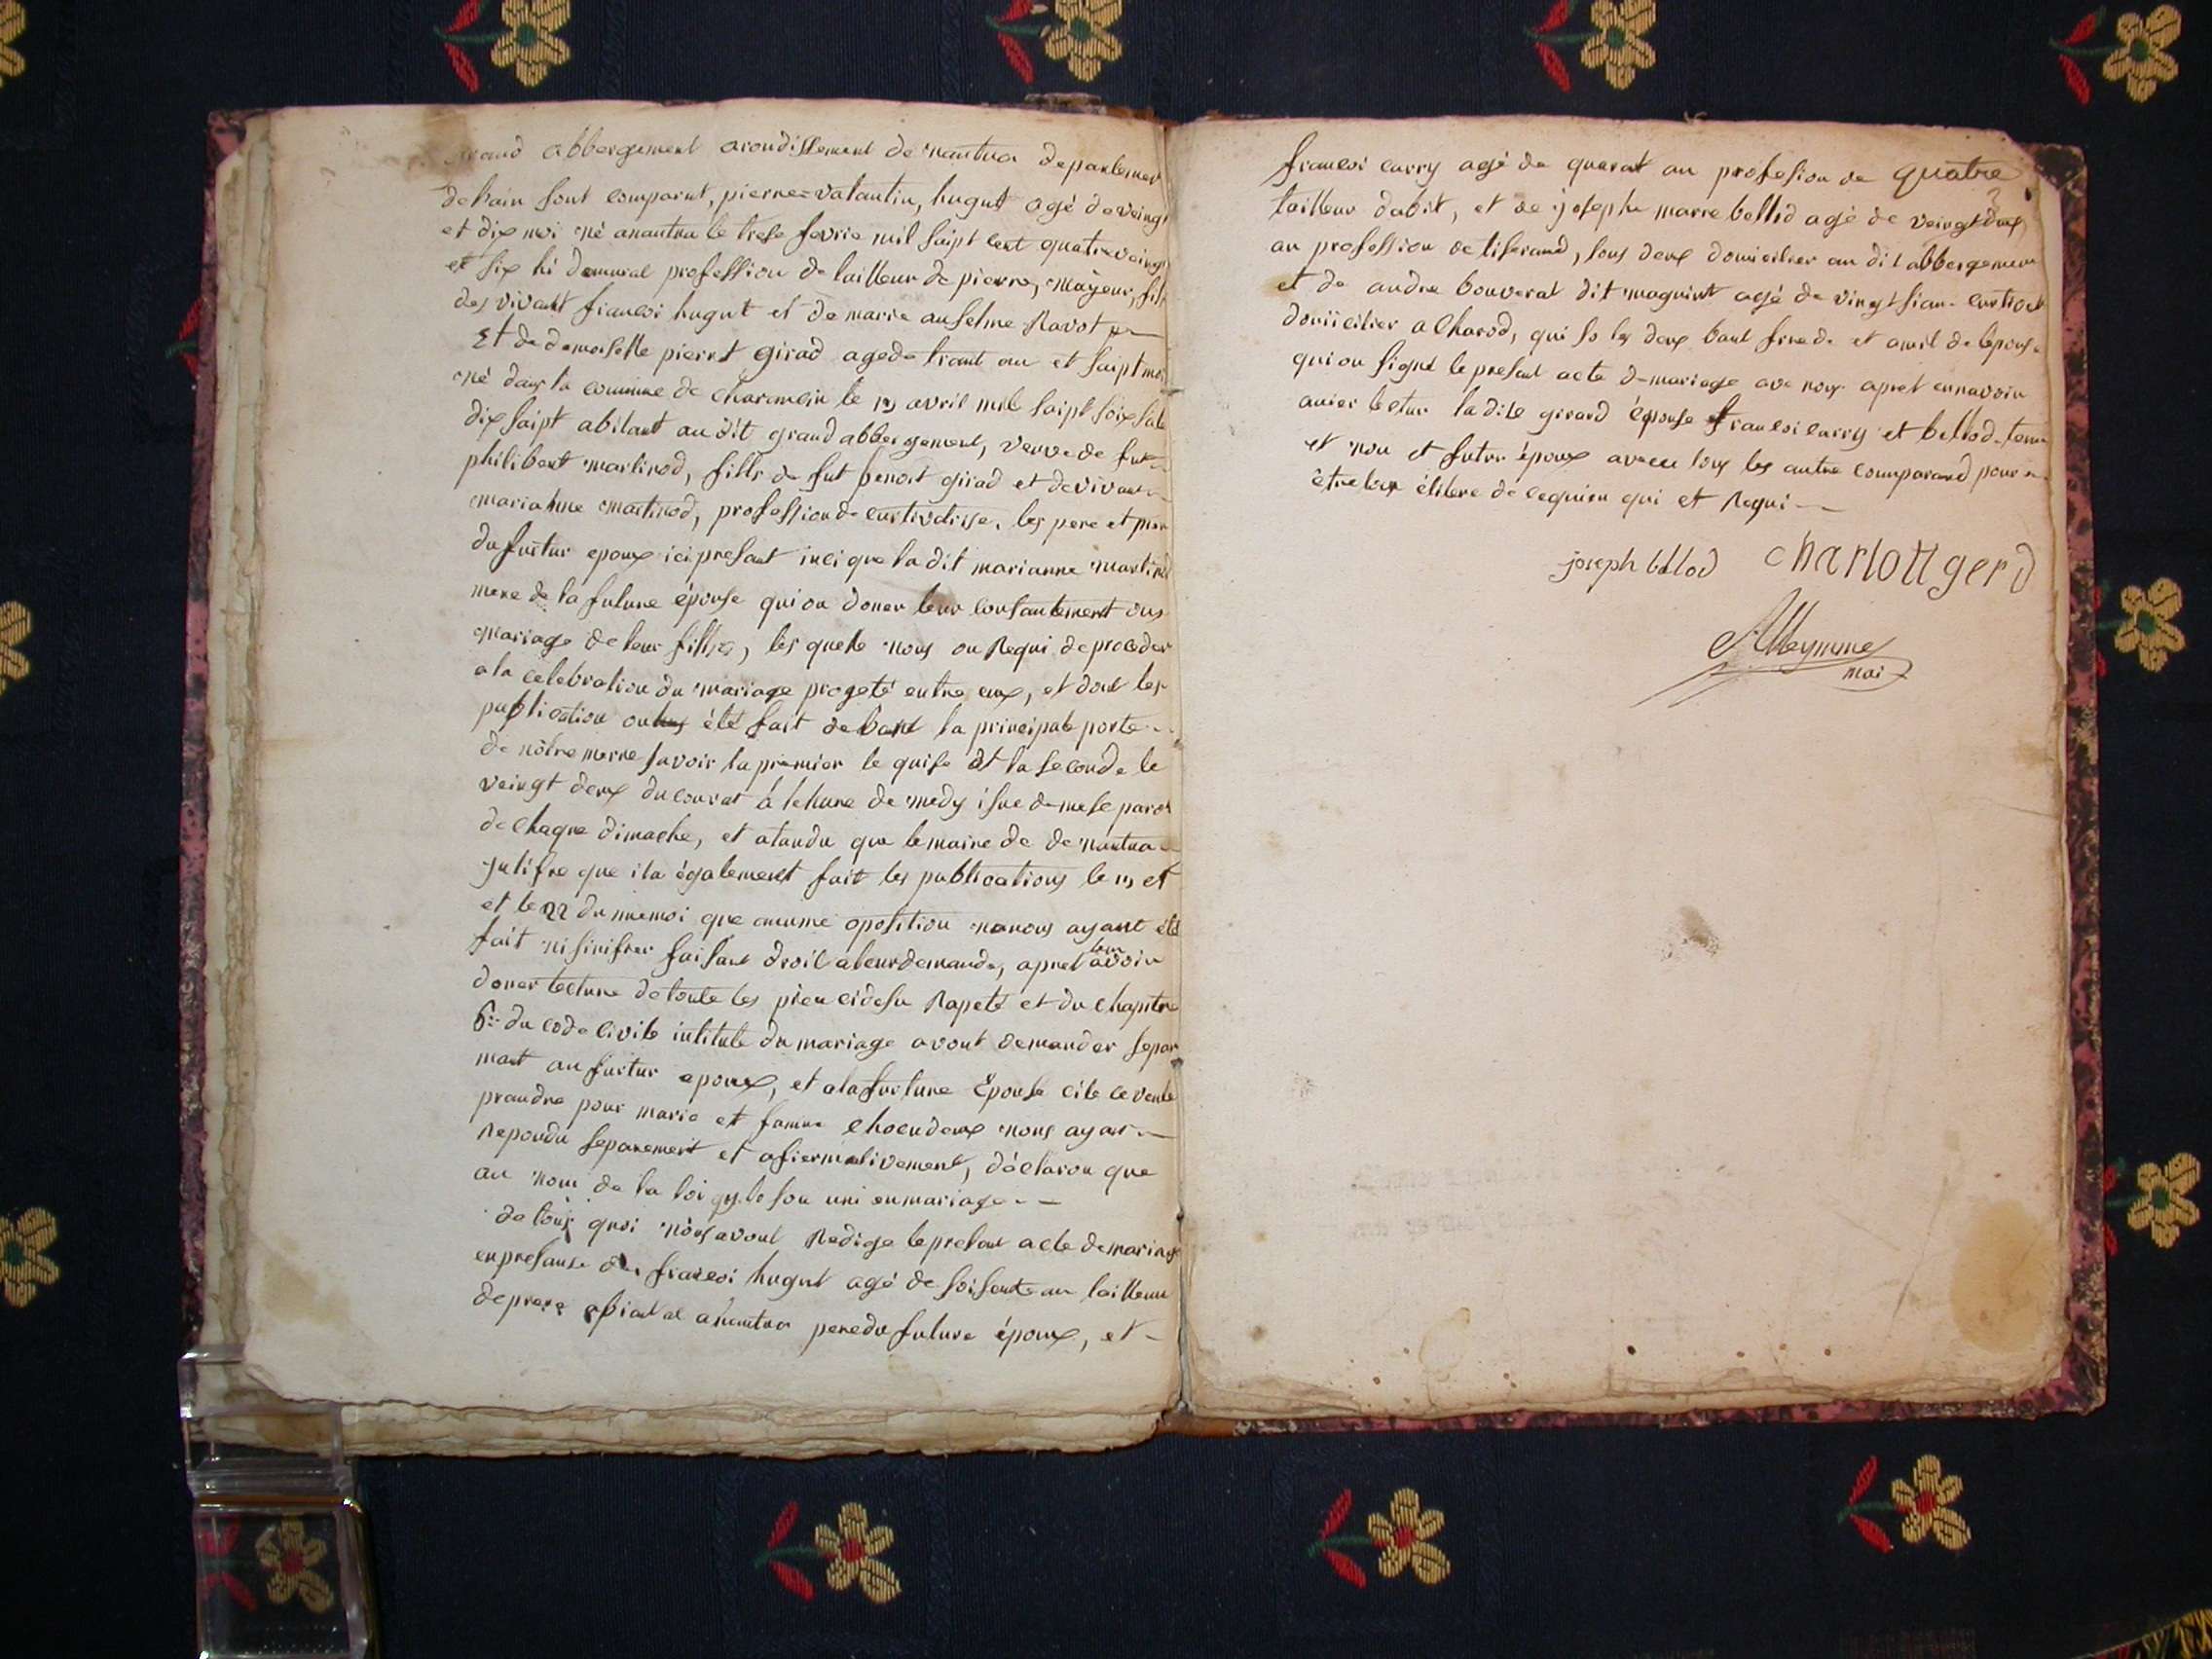 grand abbergement arondissement de nantua departement
de bain sont comparut, pierre=valantin, hugut agé de veingt
et dix moi né anantua le trese fevrie mil saipt cent quatreveingt
et six hi demural profession de tailleur de pierre, mayeur, fils
des vivant francoi hugut et de marie anselme Ravot
Et de demoiselle pierret girad agede trant an et saipt moi
né dans la comunne de charancin le 15 avril mil saipt soixsate
dix saipt abitant au dit grand abbergement, verve de fut
philibert martinod, fills de fut benoit girad et de vivant
marianne martinod, profession de curtivatrisse, les pere et mere
du furtur epoux ici presant inci que la dit marianne martinod
mere de la future épouse qui on doner leur consantement aus
mariage de leur fillses, les quele nous on Requi de proceder
a la celebration du mariage progeté entre eux, et dont les
publication on été fait debant la principale porte
de nôtre merre savoir la premier le quise et la seconde le
veingt deux du courat à lehure de medy isue de mese paros
de chaque dimache, et atandu que le maire de de nantua
jutifre que ila également fait les publications le 15 et
et le 22 du mumoi que aucune oposition nenous ayant été
fait ni sinifier faisant droit a leur demande, apret leur avoir
doner lecture de toute les pieu cidesu Rapeté et du chapitre
6 du code civile intitule du mariage avont demander separ
mant au furtur epoux, et a la furture Epouse cile ce veule
prandre pour marie et famme chaceu deux nous ayant
Repondu separement et afiermativement, déclaron que
au nom de la loi qu'ile son uni en mariage
de tous quoi nous avont Redige le presant acte de mariage
en presanse de francoi hugut agé de soisente an tailleur
de piere abitant a nantua pere du future époux, et
francoi curry agé de quarat an profesion de quatre
tailleur dabit, et de joseph marie bellod agé de veingt deux
an profession de tiserand, tous deux domicilier au dit abbergement
et de andre bouverat dit maguint agé de vingt sian curtivat
domicilier a Charod, qui so les deux baut frere de et amil de lepouse
qui on signé le presant acte de mariage ave nous apret ennavoir
auier lectur la dite girard épouse francoi curry et bellod
et non et futur époux avecu tous les autre comparand pour
être élitere de cequieu qui et Requi
joseph bellod charlottgerd
Alleynme
mai